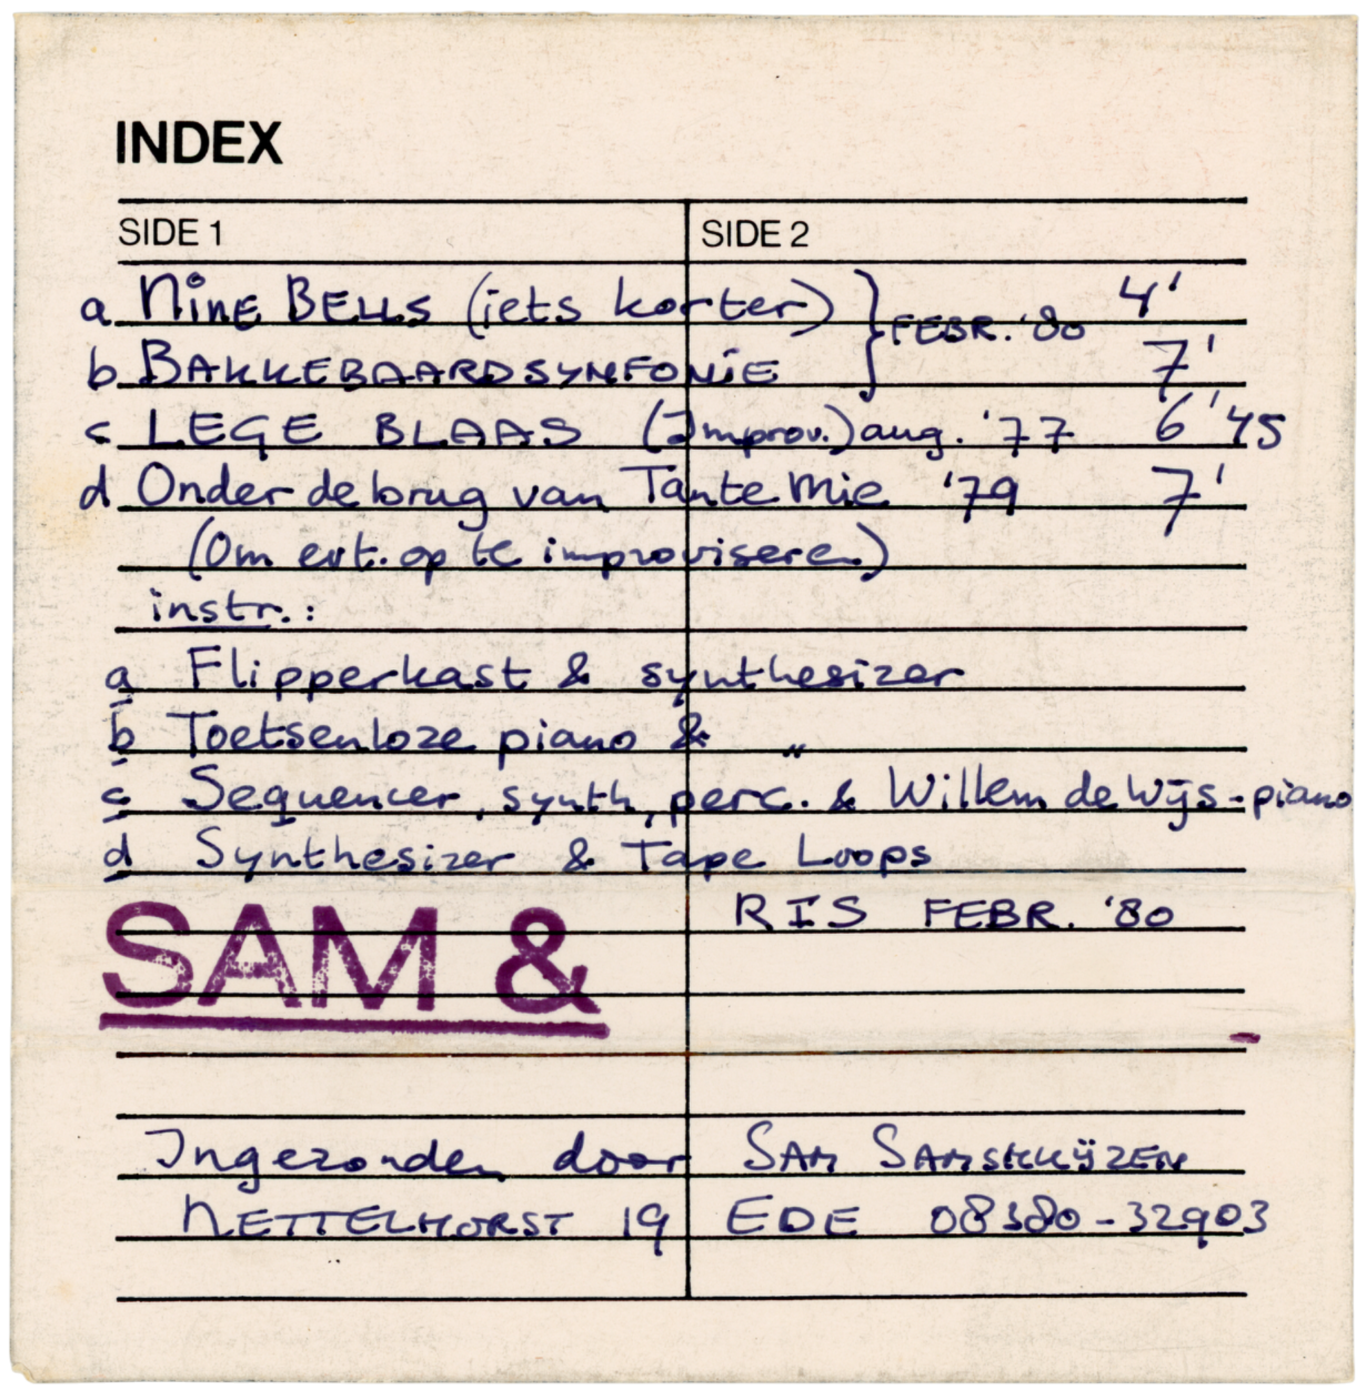 INDEX
SIDE 1 SIDE 2
a NinE BELLS (iets korter) } FEBR. '80 4'
b BAKKEBAARDSYMFONiE 7'
c LEGE BLAAS (Improv.) aug. '77 6'45
d Onder de brug van Tante Mie '79 7'
(Om evt. op te improviseren)
instr.:
a Flipperkast & synthesizer
b Toetsenloze piano & "
c Sequencer, synth, perc. & Willem de Wijs - piano
d Synthesizer & Tape Loops
RIS FEBR. '80
SAM &
Ingezonden door SAM SAMSHKÿZEN
NETTELHORST 19 EDE 08380-32903